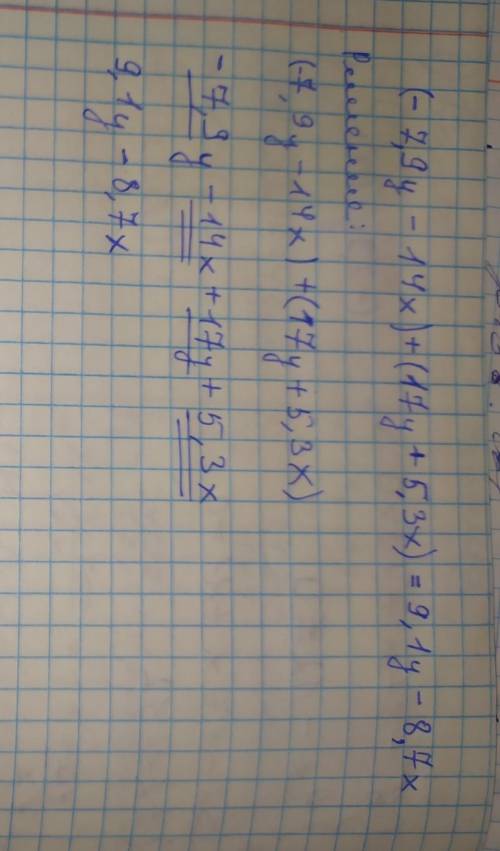 (-7,9y - 14x)+(17y + 5,3x) = 9,1y - 8,7x
Решение:
(-7,9y -14x)+(17y+5,3x)
-7,9y -14x+17y+5,3x
9,1y-8,7x